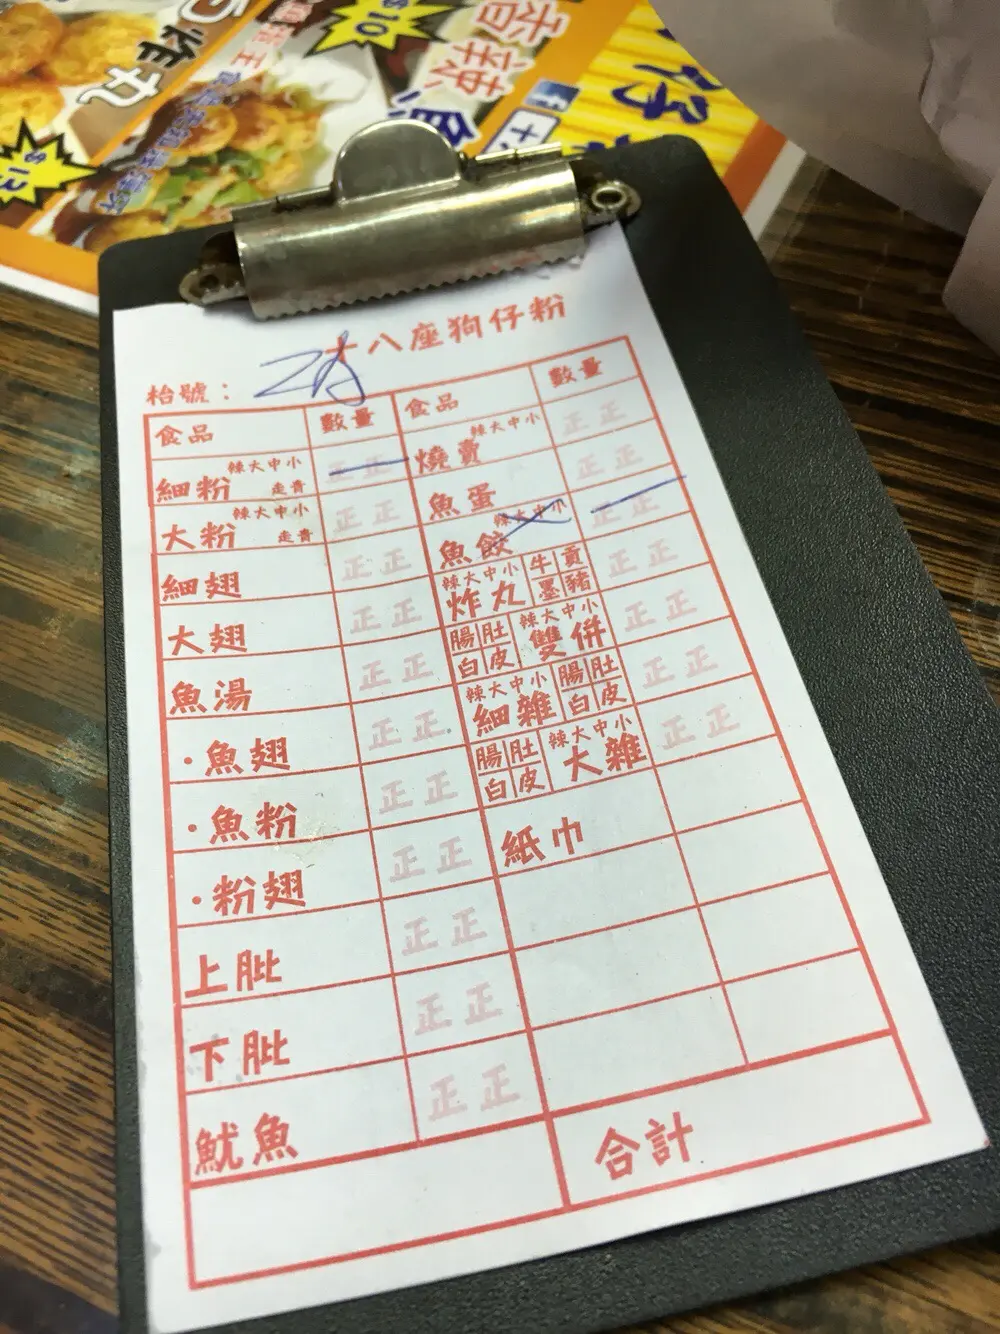 炸丸
$13
$10
香辣
魚
十八座狗仔粉
枱號：
食品 數量 食品 數量
細粉 辣大中小 走青 正正 燒賣 辣大中小 正正
大粉 辣大中小 走青 正正 魚蛋 正正
細翅 正正 魚餃 辣大中小 正正
大翅 正正 炸丸 辣大中小 牛貢墨豬 正正
魚湯 正正 腸肚白皮 雙併 辣大中小 正正
·魚翅 正正 細雜 辣大中小 腸肚白皮 正正
·魚粉 正正 腸肚白皮 大雜 辣大中小 正正
·粉翅 正正 紙巾
上肶 正正
下肶 正正
魷魚 正正
合計